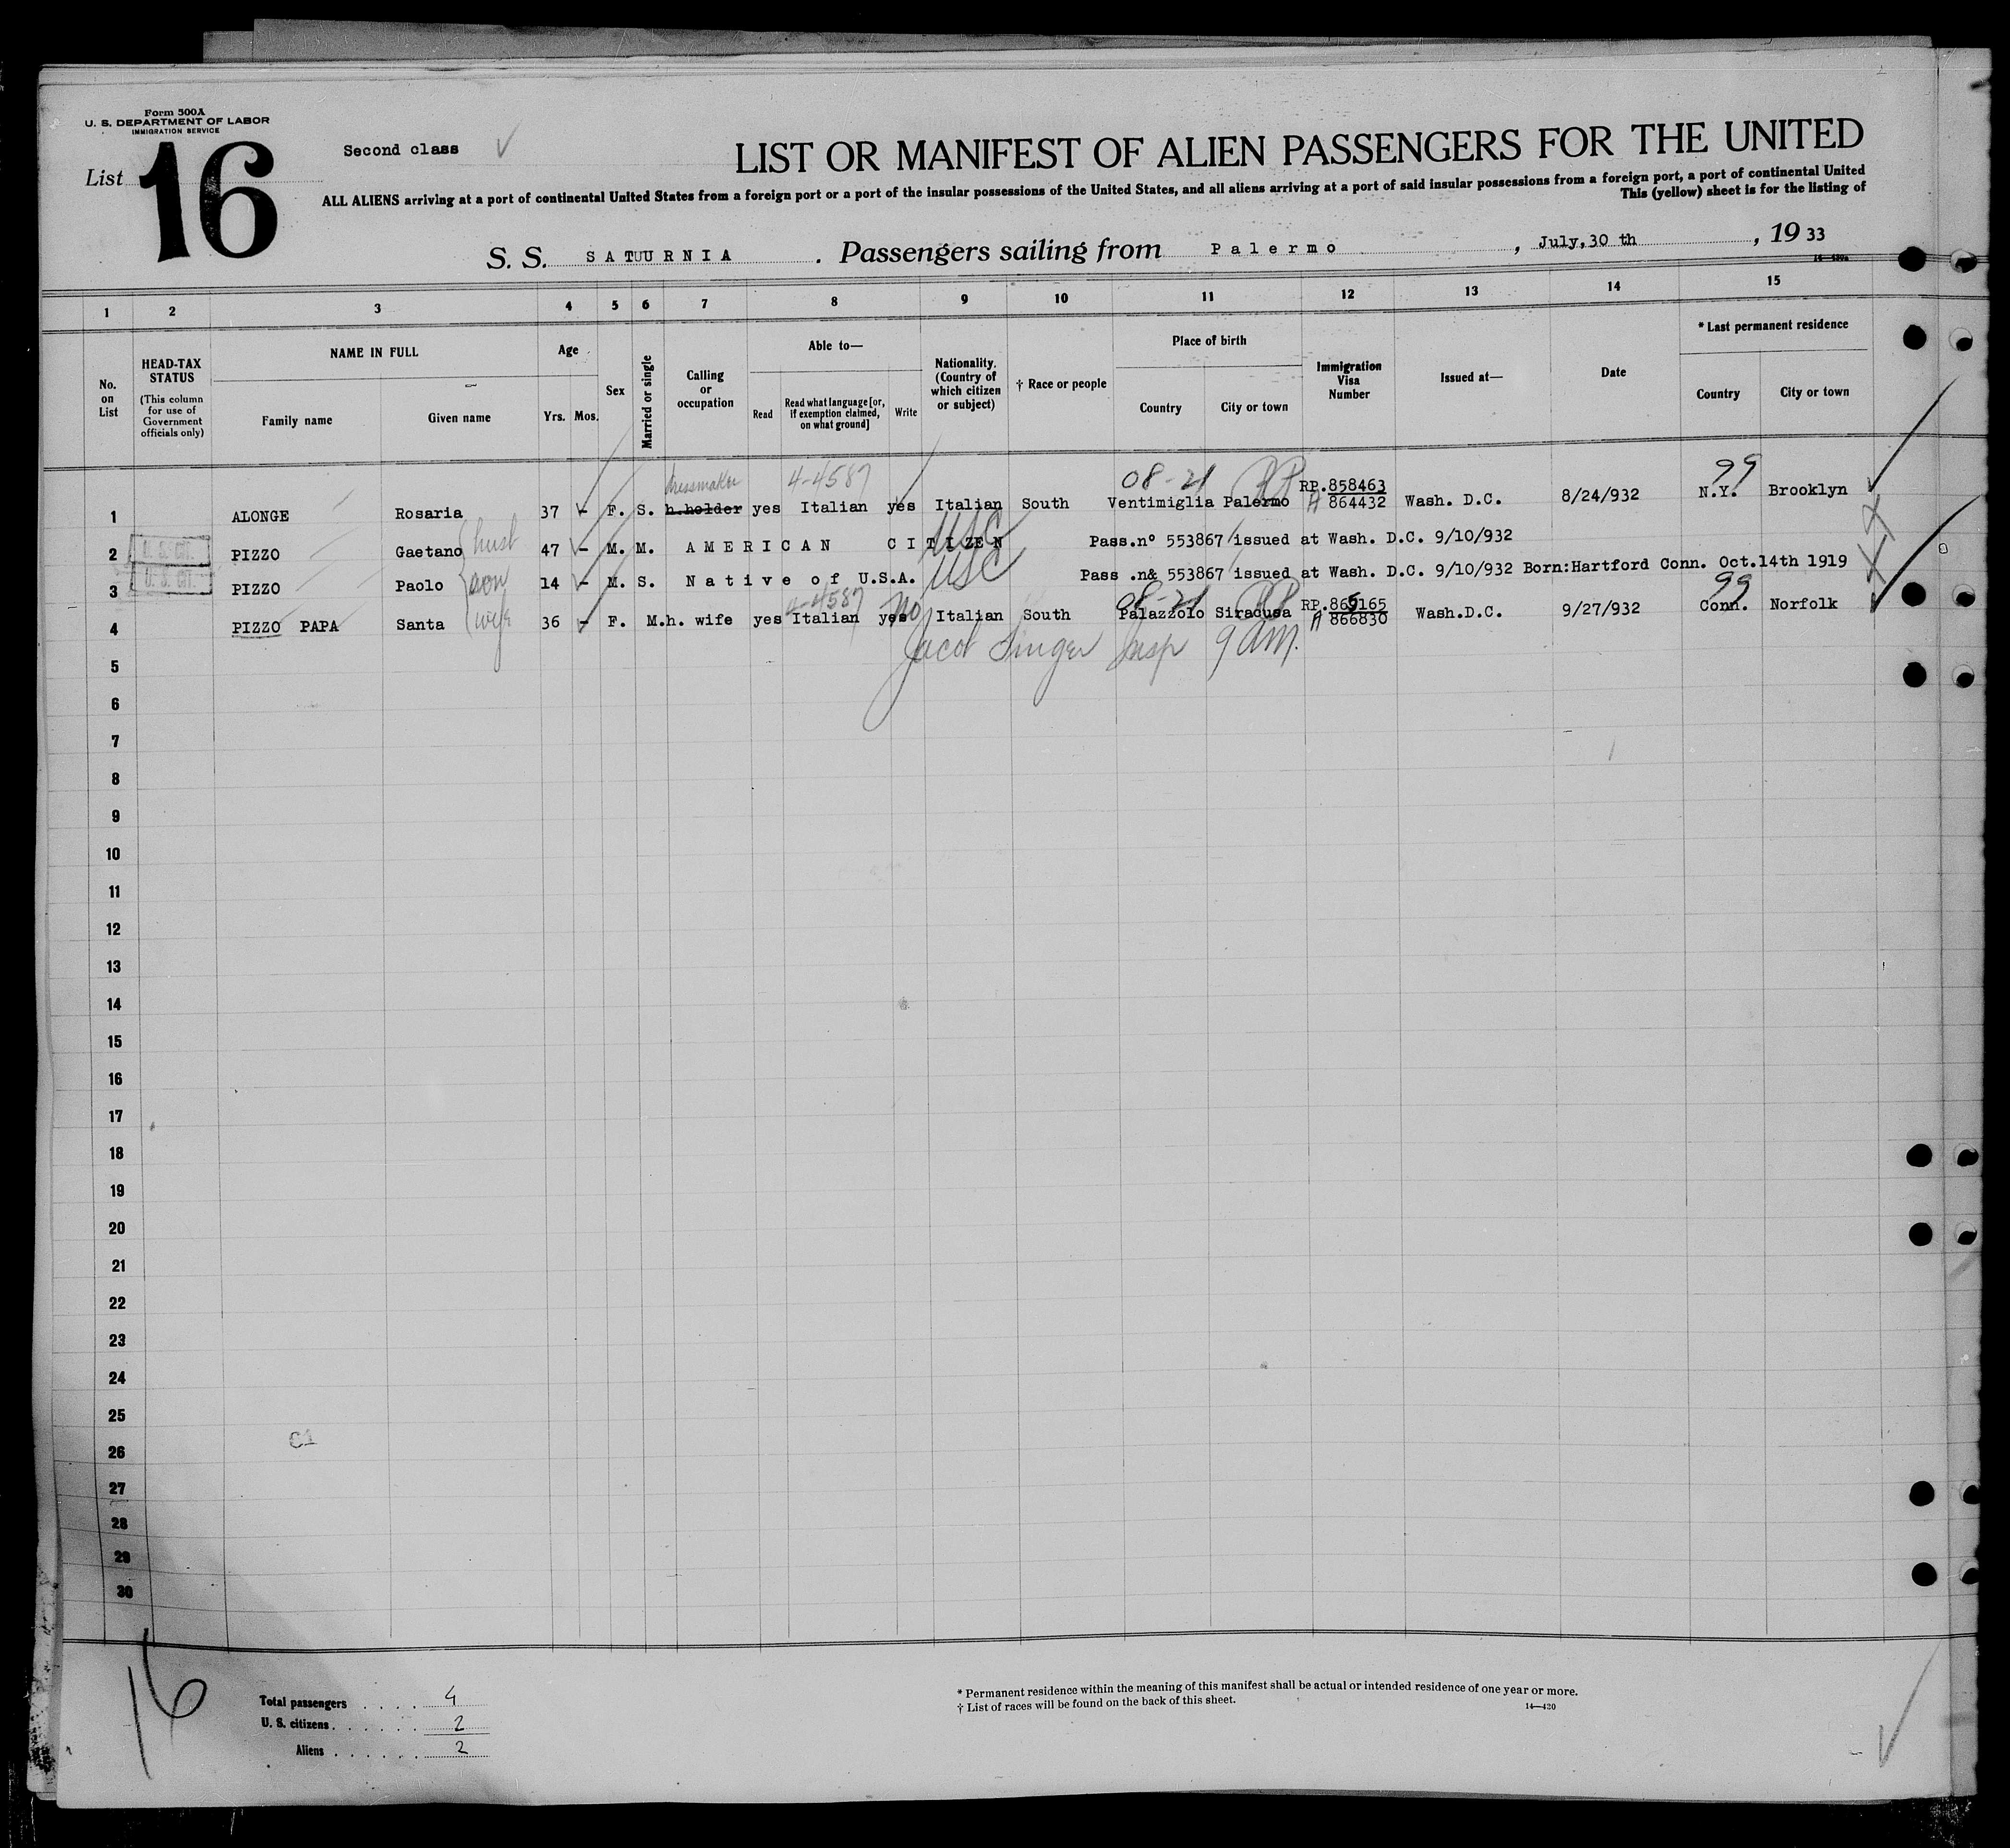 Form 500A
U. S. DEPARTMENT OF LABOR
IMMIGRATION SERVICE
List 16
Second class
LIST OR MANIFEST OF ALIEN PASSENGERS FOR THE UNITED
ALL ALIENS arriving at a port of continental United States from a foreign port or a port of the insular possessions of the United States, and all aliens arriving at a port of said insular possessions from a foreign port, a port of continental United
This (yellow) sheet is for the listing of
S. S. SATUURNIA . Passengers sailing from Palermo , July,30 th , 1933
1 2 3 4 5 6 7 8 9 10 11 12 13 14 15
No. on List
HEAD-TAX STATUS
(This column for use of Government officials only)
NAME IN FULL
Family name Given name
Age
Yrs. Mos.
Sex
Married or single
Calling or occupation
Able to—
Read Read what language [or, if exemption claimed, on what ground] Write
Nationality. (Country of which citizen or subject)
† Race or people
Place of birth
Country City or town
Immigration Visa Number
Issued at—
Date
* Last permanent residence
Country City or town
dressmaker 4-4587 08-21 99
1 ALONGE Rosaria 37 - F. S. h.holder yes Italian yes Italian South Ventimiglia Palermo RP.858463 A 864432 Wash. D.C. 8/24/932 N.Y. Brooklyn
2 U.S. CIT. PIZZO Gaetano hust 47 - M. M. AMERICAN CITIZEN USC Pass.nº 553867 issued at Wash. D.C. 9/10/932
3 U.S. CIT. PIZZO Paolo son 14 - M. S. Native of U.S.A. USC Pass .n& 553867 issued at Wash. D.C. 9/10/932 Born:Hartford Conn. Oct.14th 1919
4-4587 no 08-21 99
4 PIZZO PAPA Santa wife 36 - F. M.h. wife yes Italian yes Italian South Palazzolo Siracusa RP.865165 A 866830 Wash.D.C. 9/27/932 Conn. Norfolk
Jacob Singer Insp 9 am.
5
6
7
8
9
10
11
12
13
14
15
16
17
18
19
20
21
22
23
24
25
26
27
28
29
30
16
Total passengers . . . . . 4
U. S. citizens . . . . . . 2
Aliens . . . . . . 2
* Permanent residence within the meaning of this manifest shall be actual or intended residence of one year or more.
† List of races will be found on the back of this sheet.
14—420